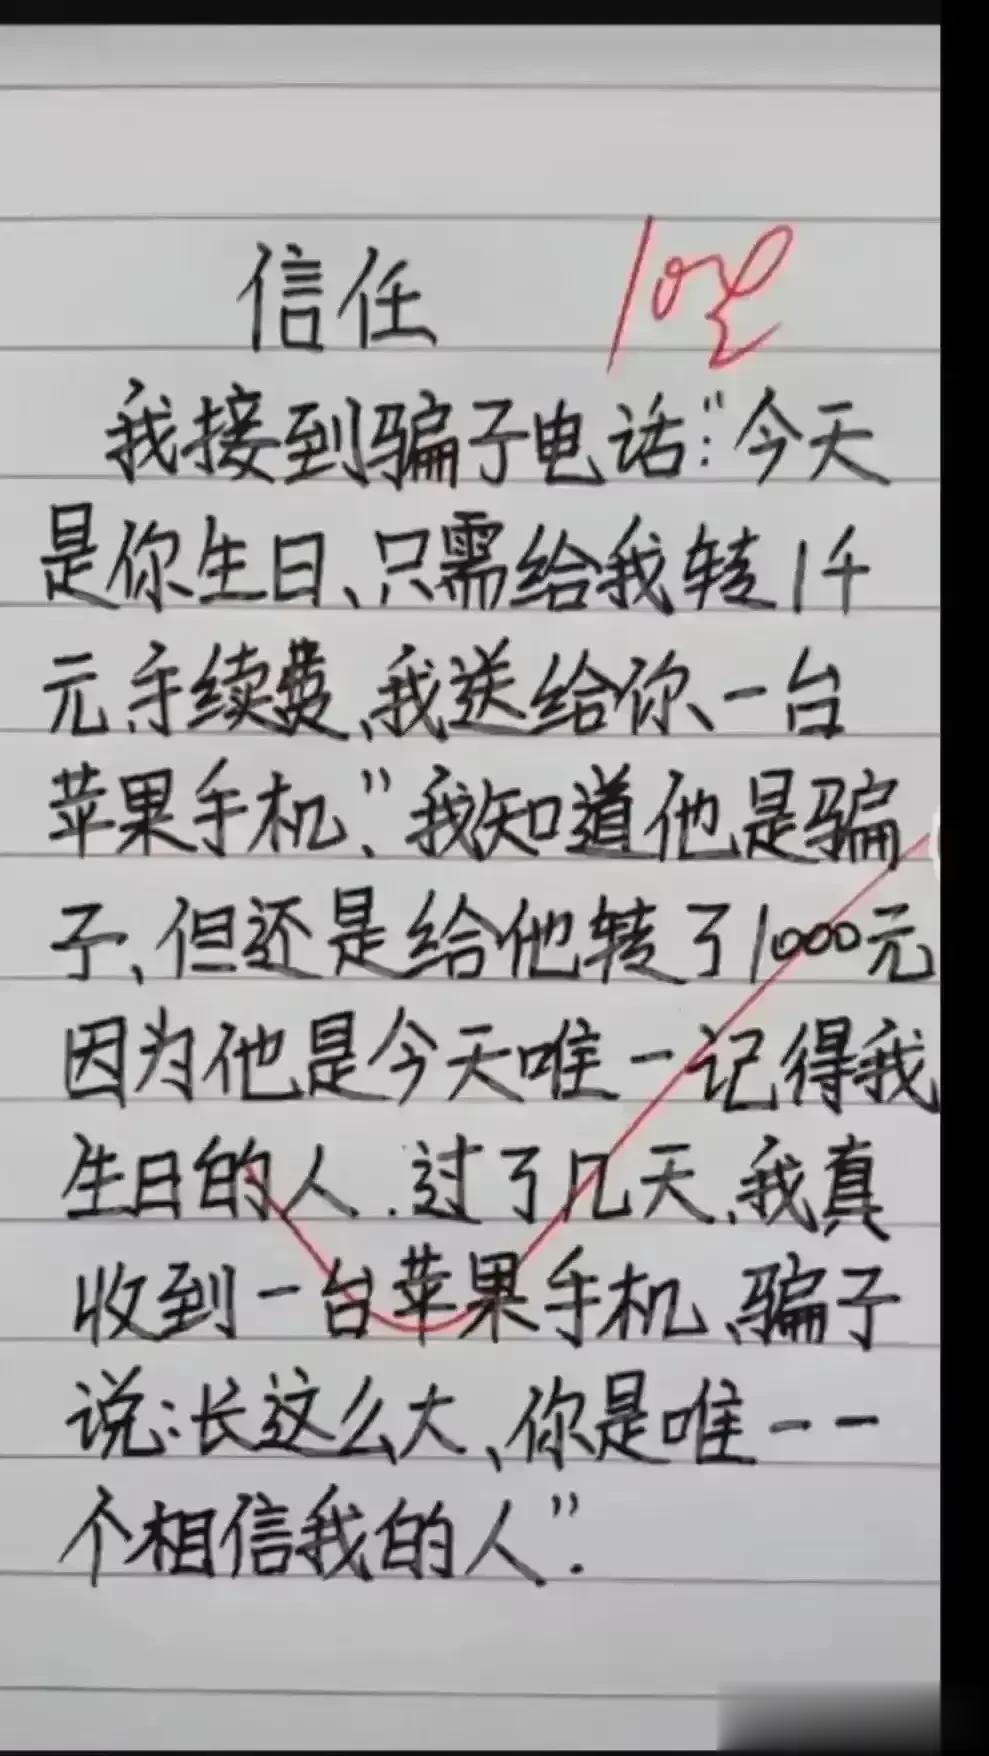 信任
我接到骗子电话:"今天
是你生日、只需给我转1千
元手续费、我送给你一台
苹果手机、"我知道他是骗
子、但还是给他转了1000元
因为他是今天唯一记得我
生日的人.过了几天、我真
收到一台苹果手机、骗子
说:长这么大、你是唯一一
个相信我的人".